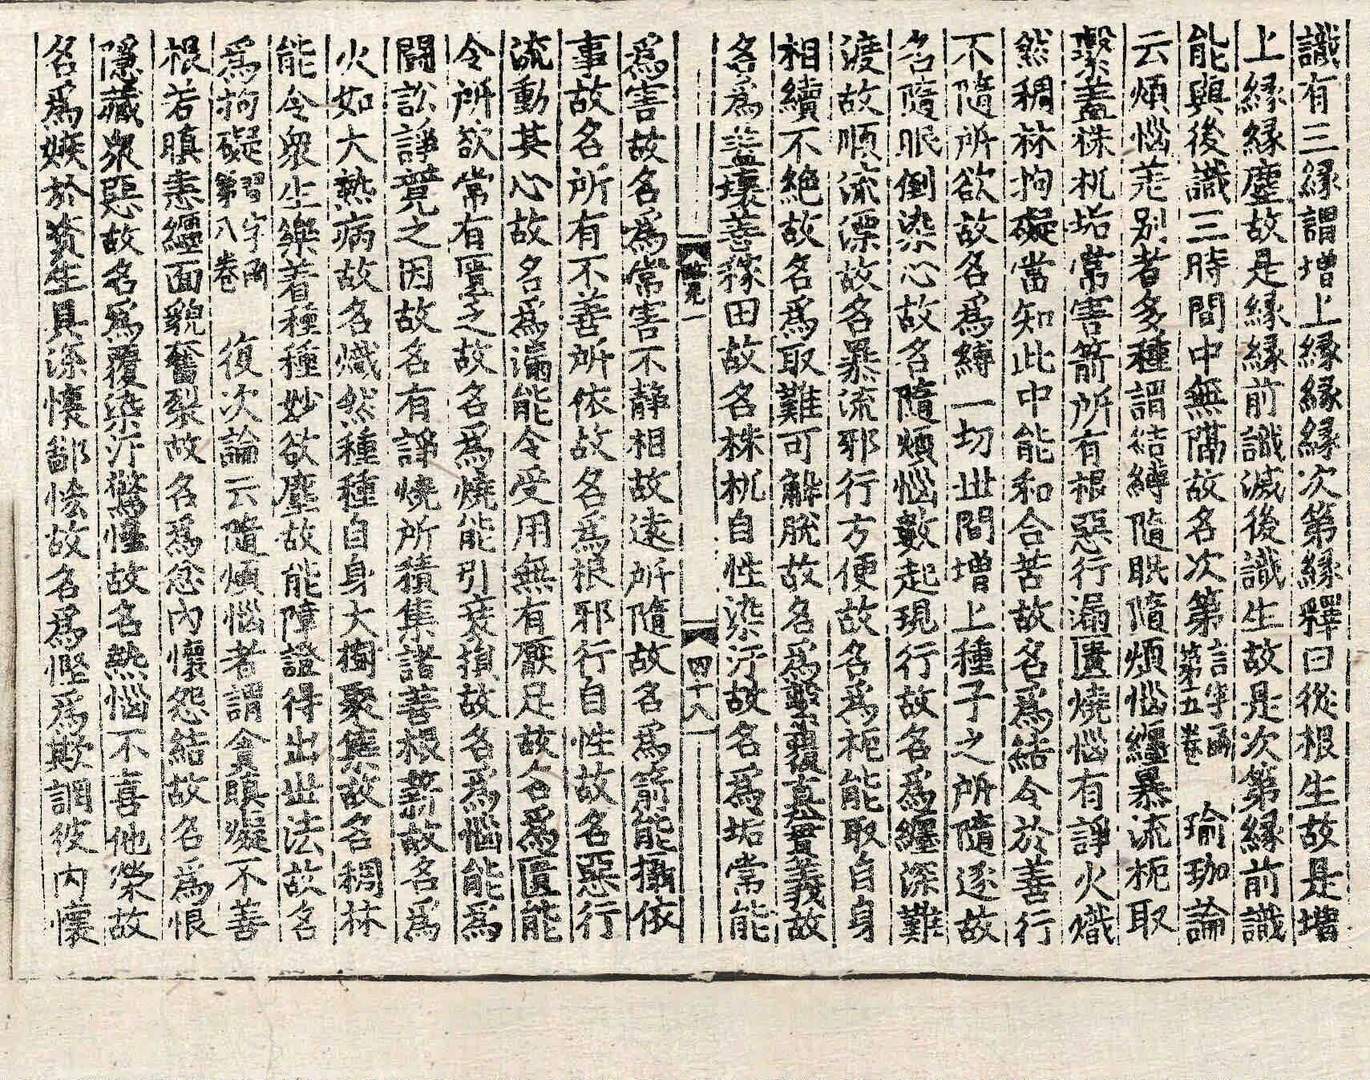 識有三緣謂增上緣緣緣次第緣釋曰從根生故是增
上緣緣塵故是緣緣前識滅後識生故是次第緣前識
能與後識三時間中無隔故名次第言字函第五卷 瑜珈論
云煩惱差別者多種謂結縛隨眠隨煩惱纏暴流軛取
繫蓋株杌垢常害箭所有根惡行漏匱燒惱有諍火熾
然稠林拘礙當知此中能和合苦故名爲結令於善行
不隨所欲故名爲縛一切世間增上種子之所隨逐故
名隨眠倒染心故名隨煩惱數起現行故名爲纏深難
渡故順流漂故名暴流邪行方便故名爲軛能取自身
相續不絶故名爲取難可解脫故名爲繫覆真實義故
名爲蓋壞善稼田故名株杌自性染汙故名爲垢常能
四十八
爲害故名爲常害不靜相故遠所隨故名爲箭能攝依
事故名所有不善所依故名爲根邪行自性故名惡行
流動其心故名爲漏能令受用無有厭足故名爲匱能
令所欲常有匱乏故名爲燒能引衰損故名爲惱能爲
鬪訟諍競之因故名有諍燒所積集諸善根薪故名爲
火如大熱病故名熾然種種自身大樹聚集故名稠林
能令衆生樂着種種妙欲塵故能障證得出世法故名
爲拘礙習字函第八卷 復次論云隨煩惱者謂貪瞋癡不善
根若瞋恚纏面貌奮裂故名爲忿內懷怨結故名爲恨
隱藏衆惡故名爲覆染汙驚惶故名熱惱不喜他榮故
名爲嫉於資生具深懷鄙悋故名爲慳爲欺誷彼內懷